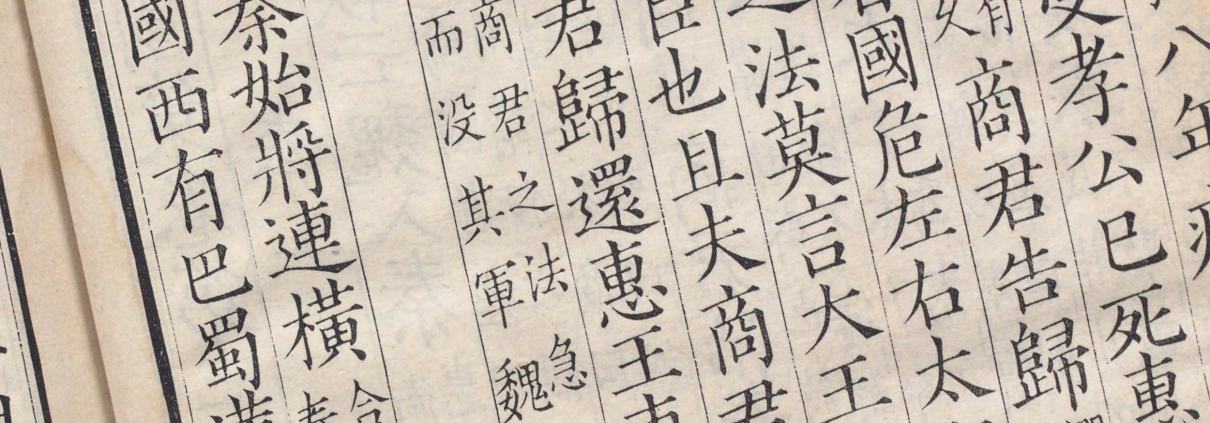 八年
孝公已死惠
商君告歸
國危左右太
法莫言大王
臣也且夫商君
君歸還惠王
商君之法急
而没其軍魏
秦始將連橫
國西有巴蜀